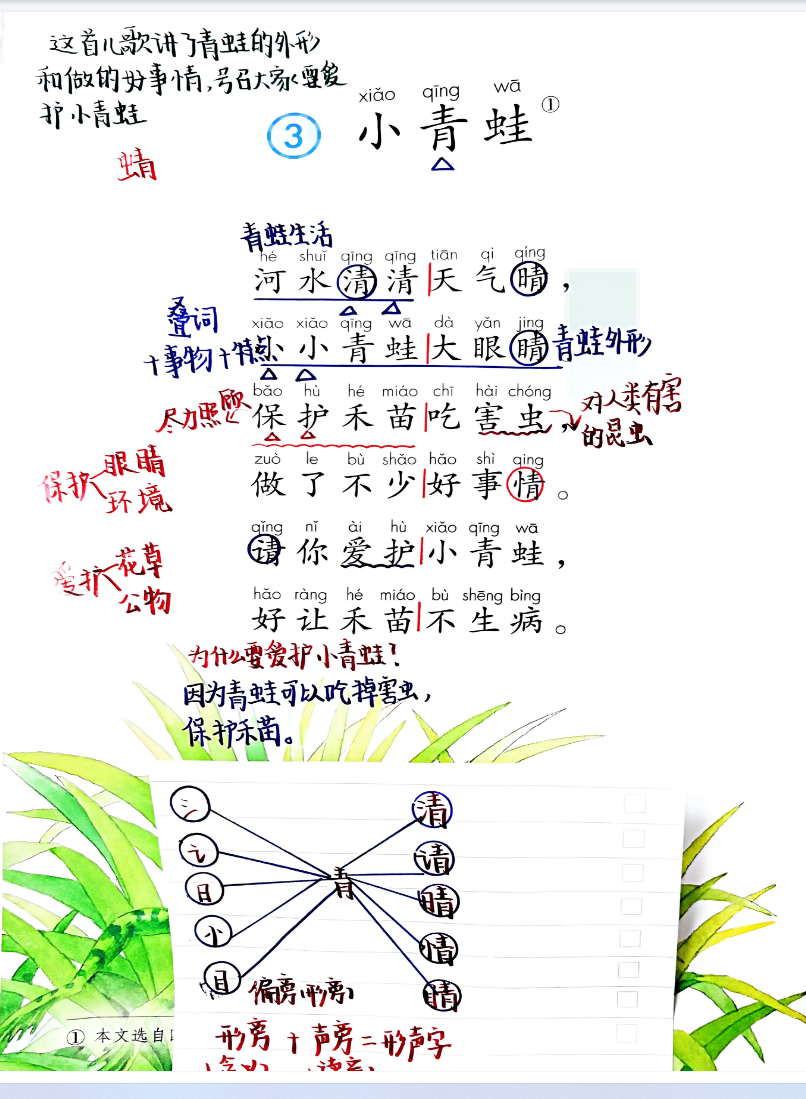 这首儿歌讲了青蛙的外形
和做的好事情,号召大家要爱
护小青蛙
xiǎo qīng wā
③ 小青蛙 ①
蜻
青蛙生活
hé shuǐ qīng qīng tiān qì qíng
河水清清|天气晴，
叠词
xiǎo xiǎo qīng wā dà yǎn jing
小小青蛙|大眼睛 青蛙外形
+事物+特点
bǎo hù hé miáo chī hài chóng
尽力照顾 保护禾苗|吃害虫， 对人类有害
的昆虫
zuò le bù shǎo hǎo shì qing
做了不少|好事情。
保护 眼睛
环境
qǐng nǐ ài hù xiǎo qīng wā
请你爱护|小青蛙，
爱护 花草
公物
hǎo ràng hé miáo bù shēng bìng
好让禾苗|不生病。
为什么要爱护小青蛙?
因为青蛙可以吃掉害虫，
保护禾苗。
氵 清
讠 请
日 青 晴
忄 情
目 睛
偏旁(形旁)
① 本文选自
形旁+声旁=形声字